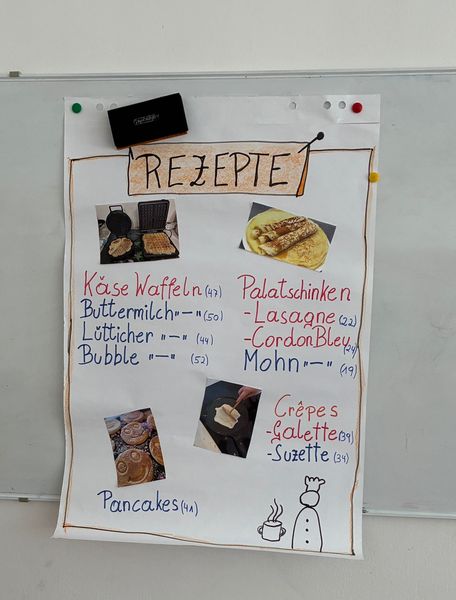 REZEPTE
Käse Waffeln (47)
Buttermilch "—" (50)
Lütticher "—" (44)
Bubble "—" (52)
Palatschinken
-Lasagne (22)
-CordonBleu (24)
Mohn "—" (19)
Crêpes
-Galette (39)
-Suzette (34)
Pancakes (41)